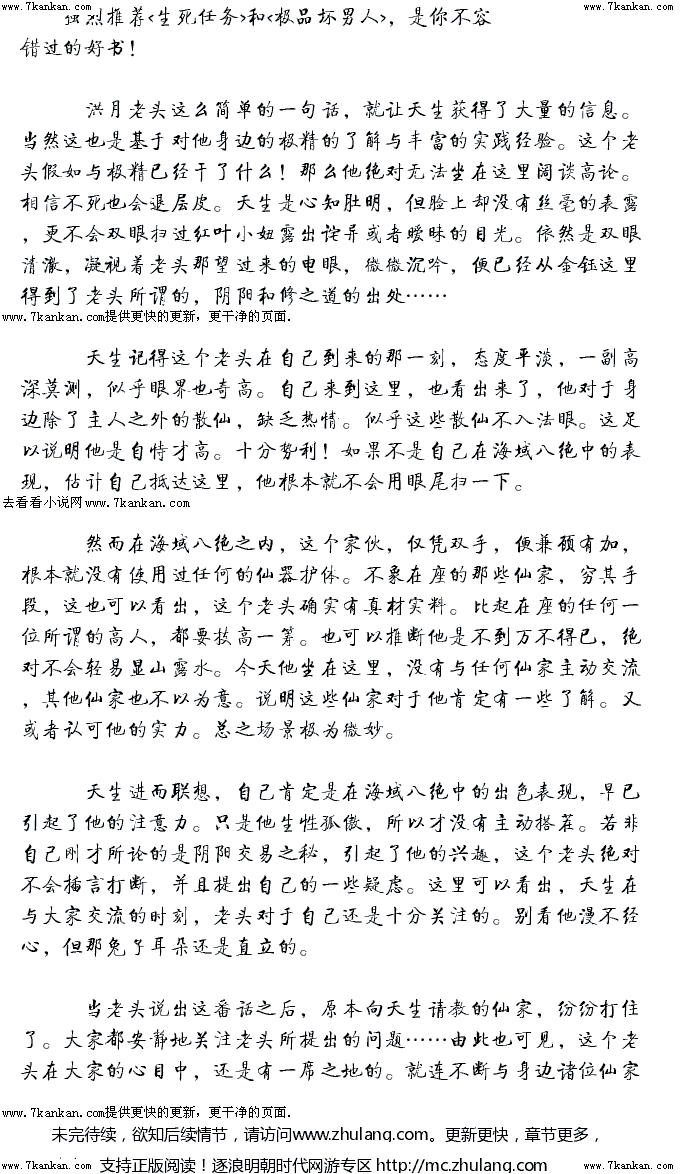 www.7kankan.com
www.7kankan.com
强烈推荐<生死任务>和<极品坏男人>，是你不容
错过的好书！
洪月老头这么简单的一句话，就让天生获得了大量的信息。
当然这也是基于对他身边的极精的了解与丰富的实践经验。这个老
头假如与极精已经干了什么！那么他绝对无法坐在这里阔谈高论。
相信不死也会退层皮。天生是心知肚明，但脸上却没有丝毫的表露
，更不会双眼扫过红叶小妞露出诧异或者暧昧的目光。依然是双眼
清澈，凝视着老头那望过来的电眼，微微沉吟，便已经从金钰这里
得到了老头所谓的，阴阳和修之道的出处……
www.7kankan.com提供更快的更新，更干净的页面.
天生记得这个老头在自己到来的那一刻，态度平淡，一副高
深莫测，似乎眼界也奇高。自己来到这里，也看出来了，他对于身
边除了主人之外的散仙，缺乏热情。似乎这些散仙不入法眼。这足
以说明他是自恃才高。十分势利！如果不是自己在海域八绝中的表
现，估计自己抵达这里，他根本就不会用眼尾扫一下。
去看看小说网www.7kankan.com
然而在海域八绝之内，这个家伙，仅凭双手，便兼顾有加，
根本就没有使用过任何的仙器护体。不象在座的那些仙家，穷其手
段，这也可以看出，这个老头确实有真材实料。比起在座的任何一
位所谓的高人，都要拔高一筹。也可以推断他是不到万不得已，绝
对不会轻易显山露水。今天他坐在这里，没有与任何仙家主动交流
，其他仙家也不以为意。说明这些仙家对于他肯定有一些了解。又
或者认可他的实力。总之场景极为微妙。
天生进而联想，自己肯定是在海域八绝中的出色表现，早已
引起了他的注意力。只是他生性孤傲，所以才没有主动搭茬。若非
自己刚才所论的是阴阳交易之秘，引起了他的兴趣，这个老头绝对
不会插言打断，并且提出自己的一些疑虑。这里可以看出，天生在
与大家交流的时刻，老头对于自己还是十分关注的。别看他漫不经
心，但那兔子耳朵还是直立的。
当老头说出这番话之后，原本向天生请教的仙家，纷纷打住
了。大家都安静地关注老头所提出的问题……由此也可见，这个老
头在大家的心目中，还是有一席之地的。就连不断与身边诸位仙家
www.7kankan.com提供更快的更新，更干净的页面.
未完待续，欲知后续情节，请访问www.zhulang.com。更新更快，章节更多，
支持正版阅读！逐浪明朝时代网游专区 http://mc.zhulang.com/
www.7kankan.com
www.7kankan.com